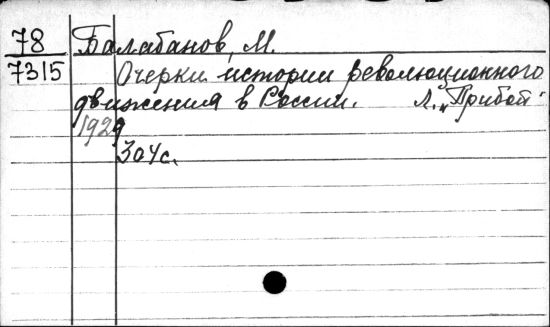 78 Балабанов, М.
7315 Очерки истории революционного
движения в России. Л. „Прибой"
1929
304с.